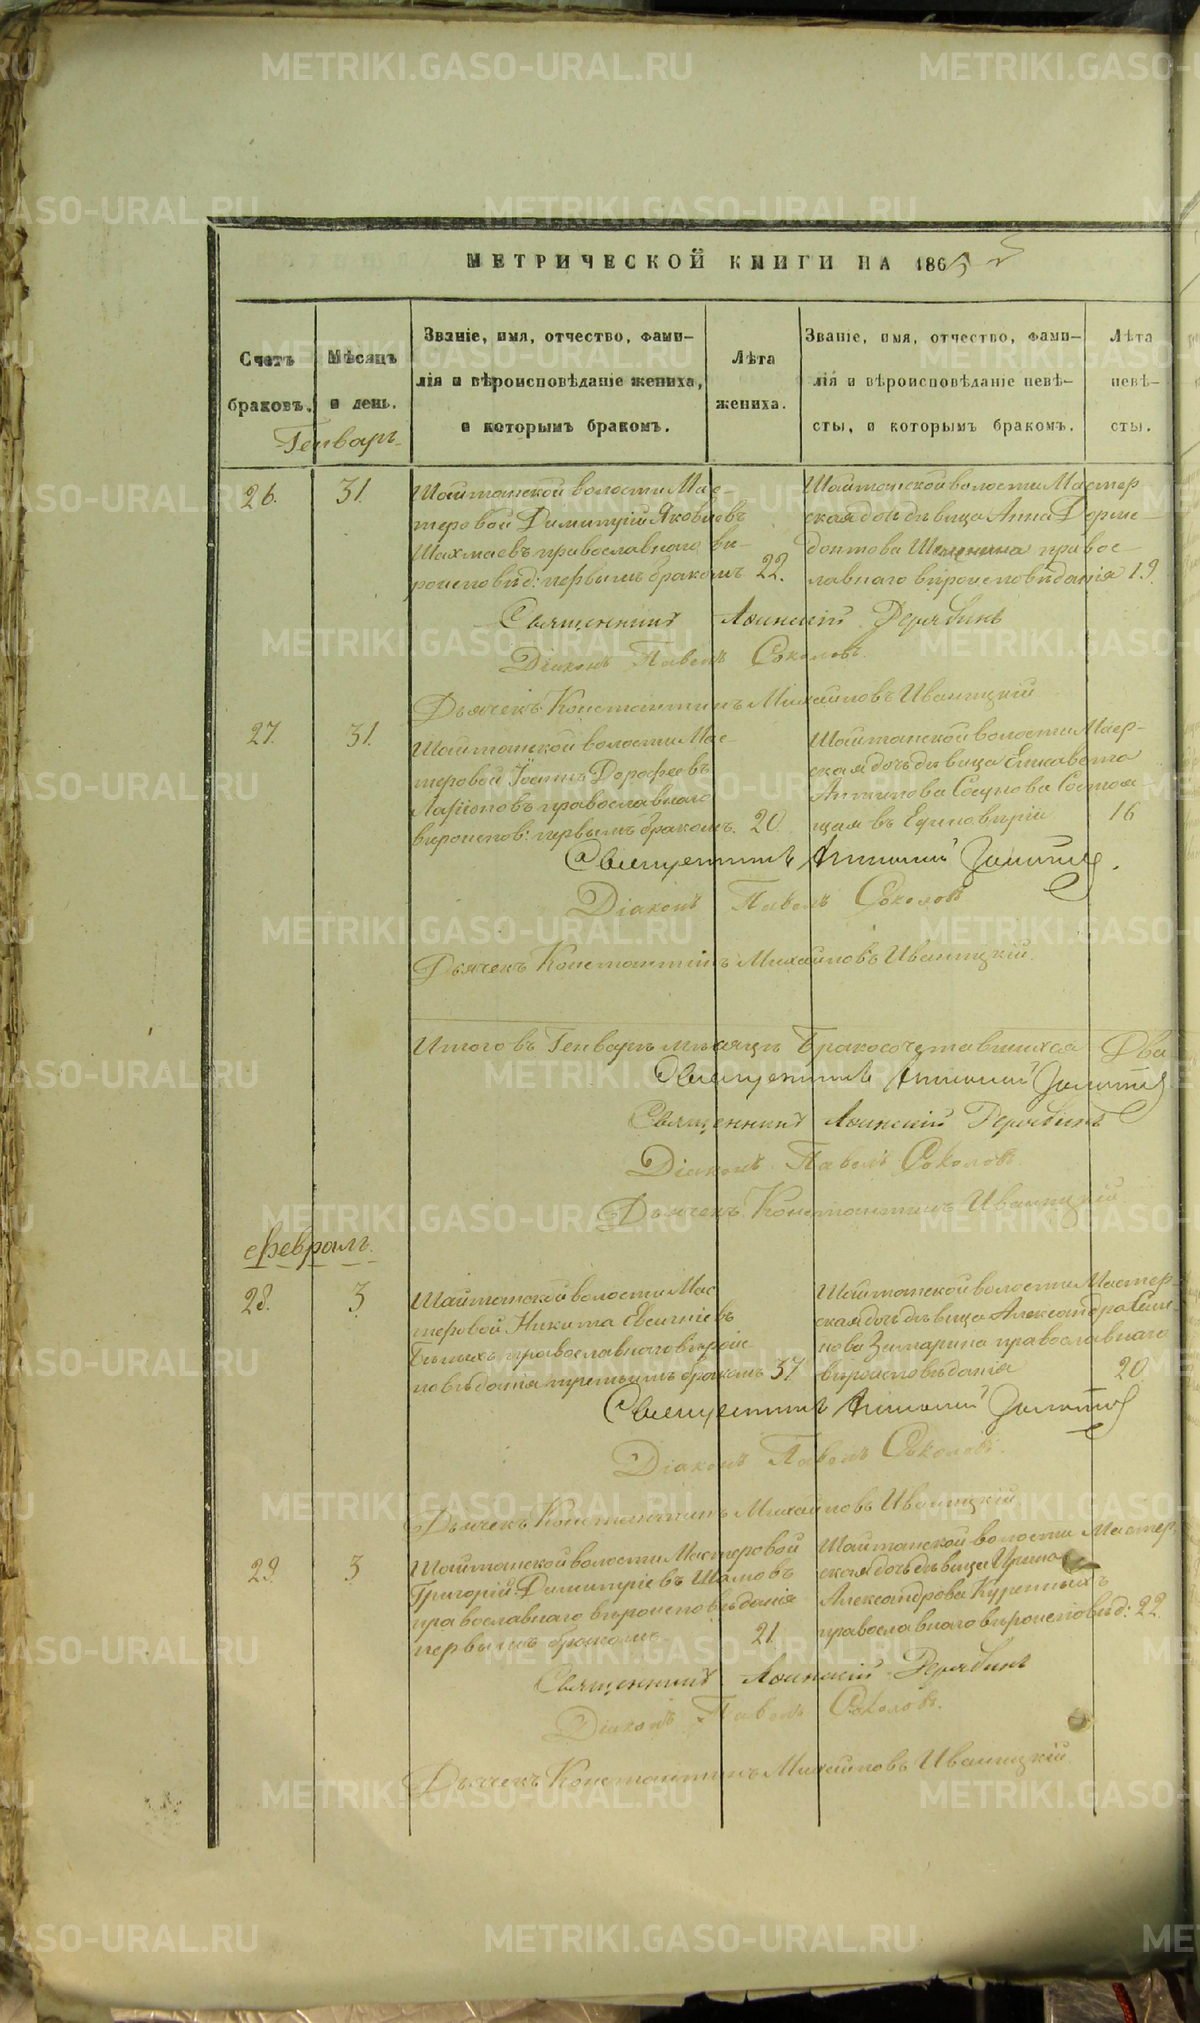 МЕТРИЧЕСКОЙ КНИГИ НА 1865
Счетъ браковъ.
Мѣсяцъ и день.
Званіе, имя, отчество, фами-
лія и вѣроисповѣданіе жениха,
и которымъ бракомъ.
Лѣта жениха.
Званіе, имя, отчество, фами-
лія и вѣроисповѣданіе невѣ-
сты, и которымъ бракомъ.
Лѣта невѣ-
сты.
Генварь
26. 31.
Шайтанской волости Мас-
теровой Димитрій Яковлевъ
Шахмаевъ православнаго вѣ-
роисповѣд: первымъ бракомъ 22.
Шайтанской волости Мастер
ская дочь дѣвица Анна
правос-
лавнаго вѣроисповѣданія 19.
Священникъ Дерябинъ
Діаконъ Павелъ Соколовъ
Дьячекъ Константинъ Михайловъ Иваницкій
27. 31.
Шайтанской волости Мас-
теровой Іоаннъ Дорофеевъ
Ларіоновъ православнаго
вѣроиспов: первымъ бракомъ. 20.
Шайтанской волости Маср-
ская дочь дѣвица Елисавета
Сосунова Состоя
щая въ Единовѣріи 16
Священникъ
Діаконъ Павелъ Соколовъ
Дьячекъ Константинъ Михайловъ Иваницкій.
Итого въ Генварѣ мѣсяцѣ бракосочетавшихся Два
Священникъ
Священникъ Дерябинъ
Діаконъ Павелъ Соколовъ
Дьячекъ Константинъ Иваницкій
Февраль.
28. 3
Шайтанской волости Мас
теровой Никита Евсигніевъ
православнаго вѣроис
повѣданія третьимъ бракомъ 37
Шайтанской волости Мастер-
ская дочь дѣвица Александра Семе-
нова Зимарина православнаго
вѣроисповѣданія 20
Священникъ
Діаконъ Павелъ Соколовъ.
Дьячекъ Константинъ Михайловъ Иваницкій
29. 3
Шайтанской волости Мастеровой
Григорій Димитріевъ Шамовъ
православнаго вѣроисповѣданія
первымъ бракомъ 21
Шайтанской волости Мастер
ская дочь дѣвица Ирина
Александрова Куренныхъ
православнаго вѣроисповѣд: 22
Священникъ Дерябинъ
Діаконъ Павелъ Соколовъ.
Дьячекъ Константинъ Михайловъ Иваницкій.
METRIKI.GASO-URAL.RU